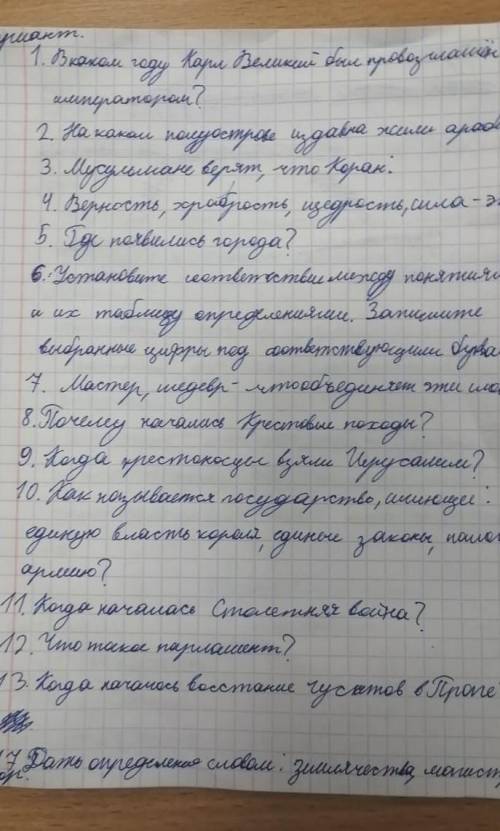 вариант.
1. В каком году Карл Великий был провозглашён
императором?
2. На каком полуострове издавна жили араб
3. Мусульмане верят, что Коран:
4. Верность, храбрость, щедрость, сила - э
5. Где появились города?
6. Установите соответствие между понятиями
и их таблицу определениями. Запишите
выбранные цифры под соответствующими буква
7. Мастер, шедевр - что объединяет эти сло
8. Почему начались Крестовые походы?
9. Когда крестоносцы взяли Иерусалим?
10. Как называется государство, имеющее:
единую власть короля, единые законы, налог
армию?
11. Когда началась Столетняя война?
12. Что такое парламент?
13. Когда началось восстание гуситов в Праге
17. Дать определение словам: землячества, магист